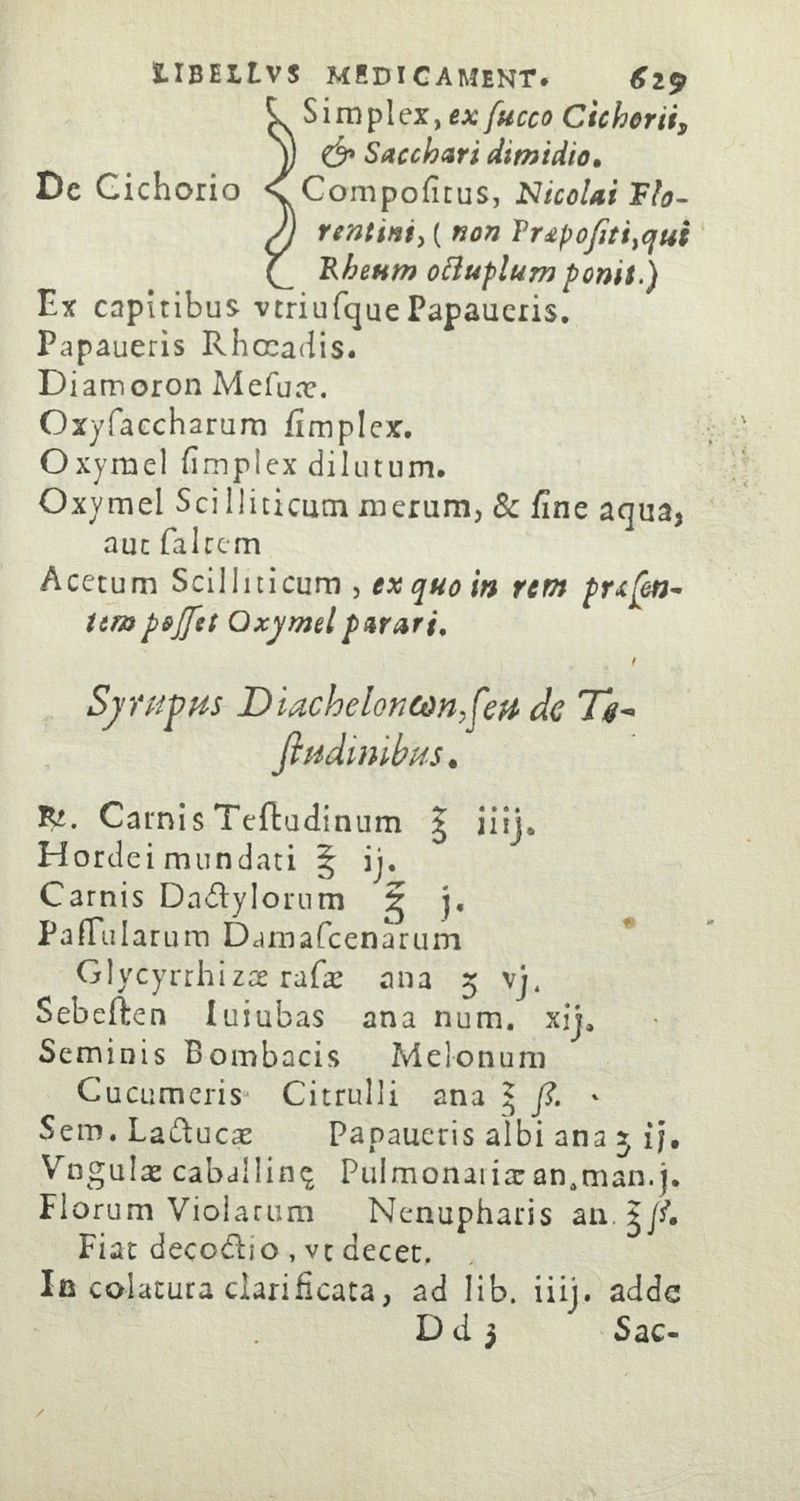 LIBELLVS MEDICAMENT. 629
Simplex, ex ſucco Cichorii,
& Sacchari dimidio.
De Cichorio Compoſitus, Nicolai Flo-
rentini, ( non Præpoſiti,qui
Rheum octuplum ponit.)
Ex capitibus vtriuſque Papaueris.
Papaueris Rhœadis.
Diamoron Meſuæ.
Oxyſaccharum ſimplex.
Oxymel ſimplex dilutum.
Oxymel Scilliticum merum, & ſine aqua,
aut ſaltem
Acetum Scilliticum , ex quo in rem præſen-
tem poſſet Oxymel parari.
Syrupus Diachelonωn,ſeu de Te-
ſtudinibus.
℞. Carnis Teſtudinum ℥ iiij.
Hordei mundati ℥ ij.
Carnis Dactylorum ℥ j.
Paſſularum Damaſcenarum
Glycyrrhizæ raſæ ana ʒ vj.
Sebeſten Iuiubas ana num. xij.
Seminis Bombacis Melonum
Cucumeris Citrulli ana ℥ ß.
Sem. Lactucæ Papaueris albi ana ʒ ij.
Vngulæ caballinę Pulmonariæ an.man.j.
Florum Violarum Nenupharis an. ℥ ß.
Fiat decoctio , vt decet.
In colatura clarificata, ad lib. iiij. adde
Dd 3 Sac-